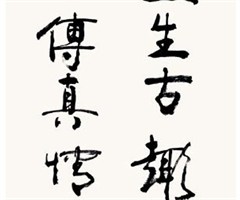 生古趣
傳真情